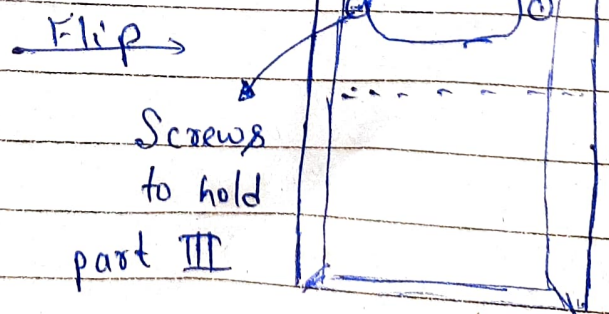 Flip
Screws
to hold
part III